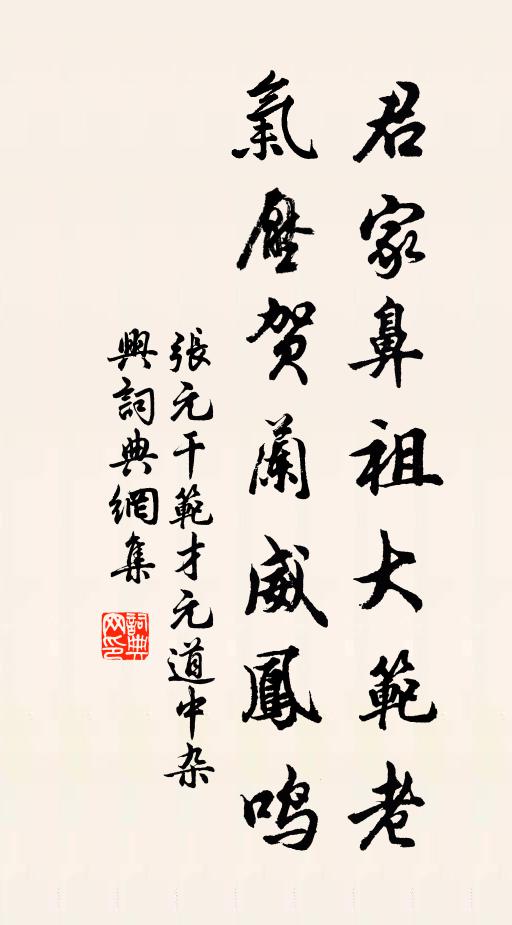 君家鼻祖大範老
氣壓贺蘭威鳳鸣
張元干範才元道中杂
興詞典網集
詞典网印